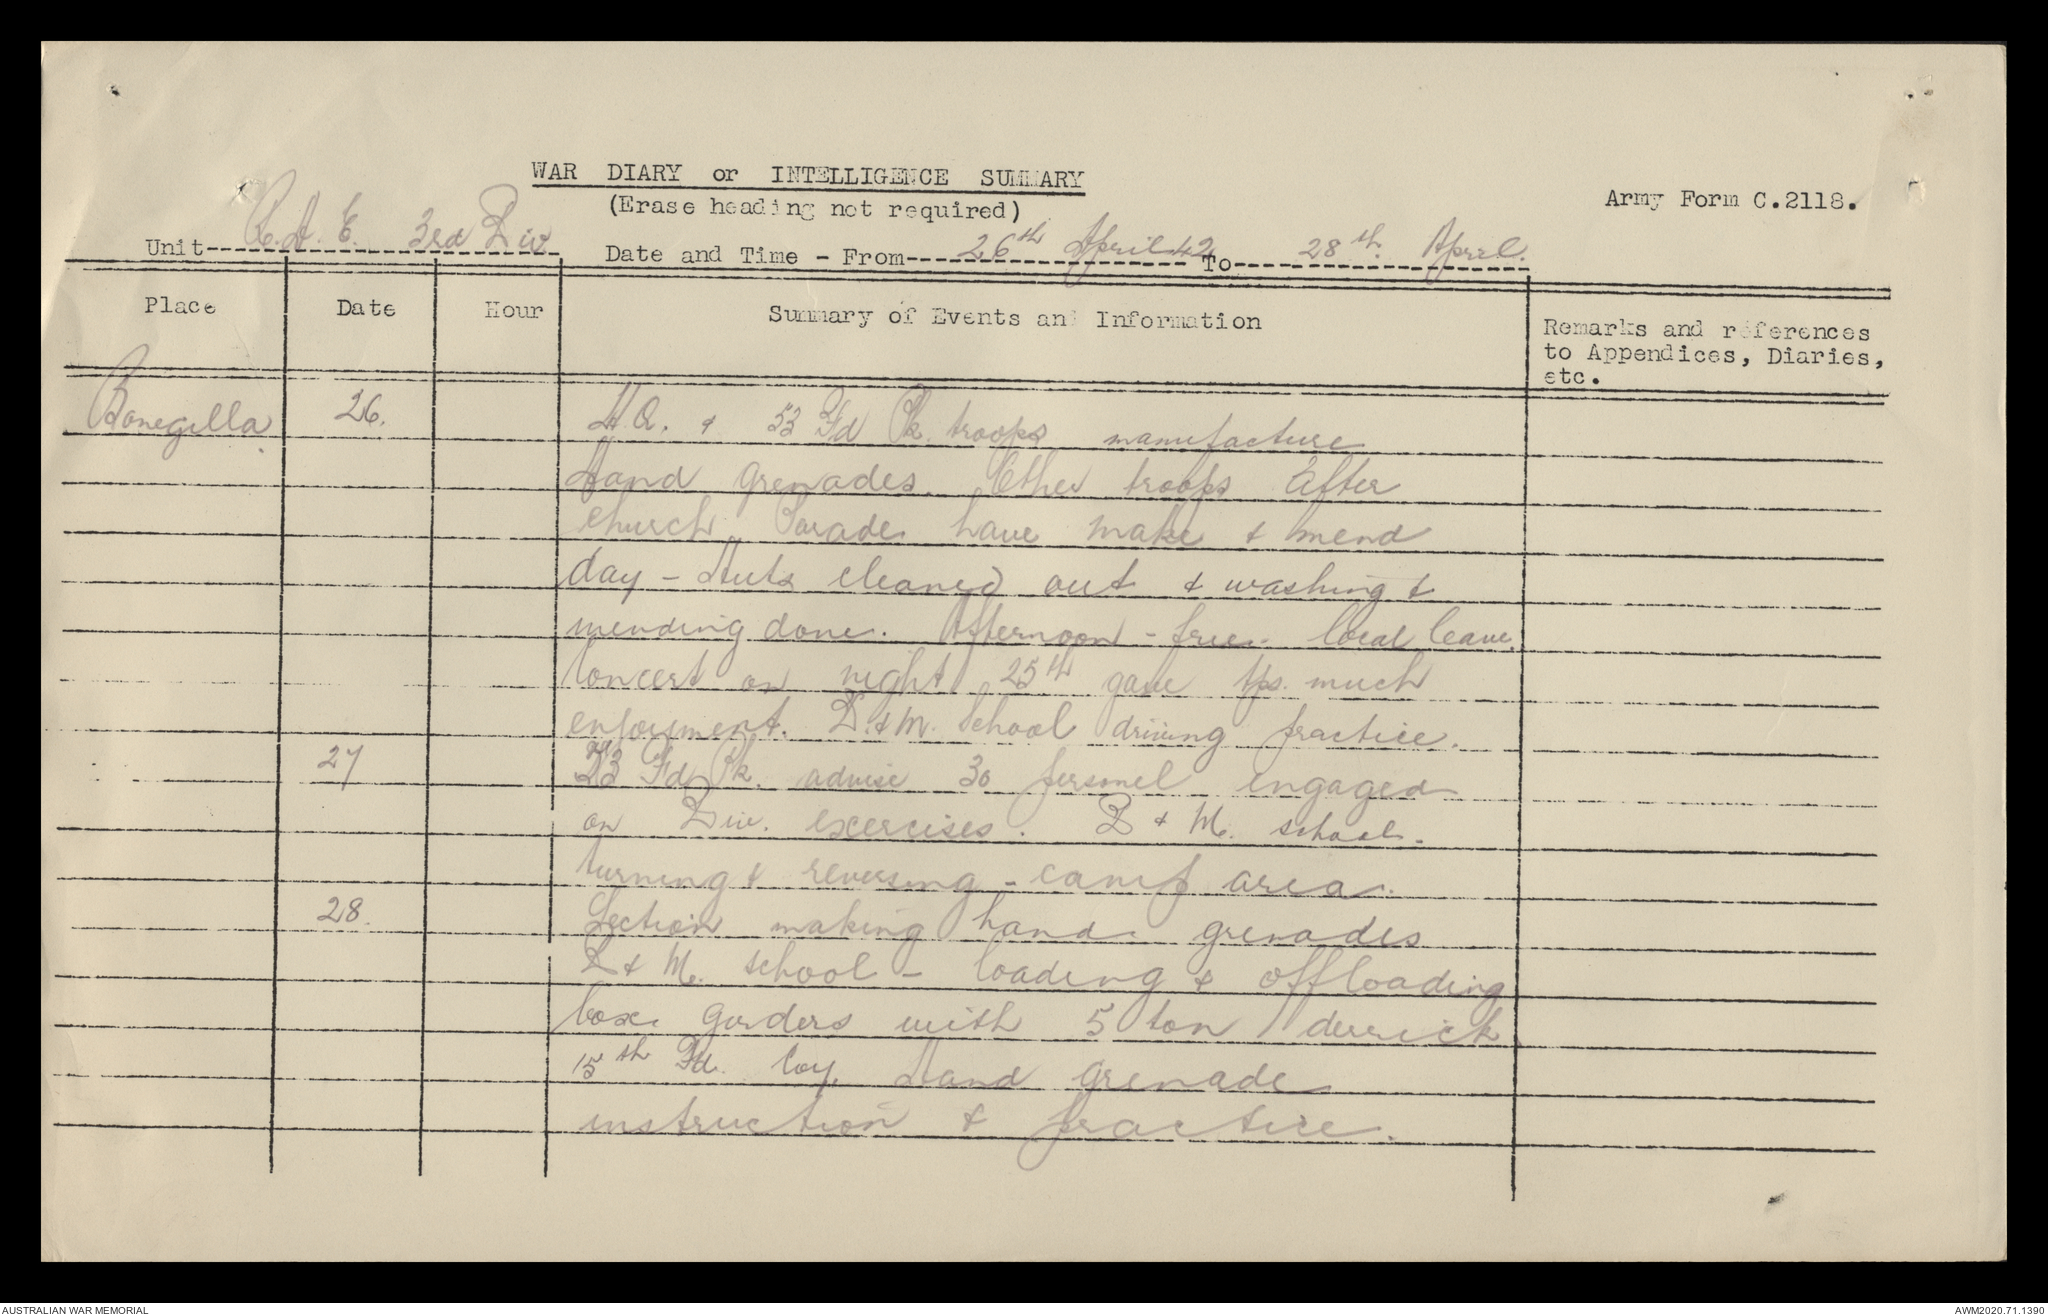 WAR DIARY or INTELLIGENCE SUMMARY
(Erase heading not required)
Army Form C.2118.
Unit R.A.E. 3rd Div
Date and Time - From 26th April 42 To 28th. April.
Place Date Hour Summary of Events and Information Remarks and references
to Appendices, Diaries,
etc.
Bonegilla. 26. H.Q. & 53 Fd Pk. troops manufacture
Hand grenades. Other troops after
church Parade have make & mend
day - Huts cleaned out & washing &
mending done. Afternoon - free. local leave.
Concert on night 25th gave tps. much
enjoyment. D. & M. School driving practice.
27 Fd Pk. advise 30 personel engaged
on Div. excercises. D & M. school.
turning & reversing - camp area.
28. Section making hand grenades
D & M. school - loading & offloading
box girders with 5 ton derrick
15th Fd. Coy. Hand grenade
instruction & practice.
AUSTRALIAN WAR MEMORIAL
AWM2020.71.1390